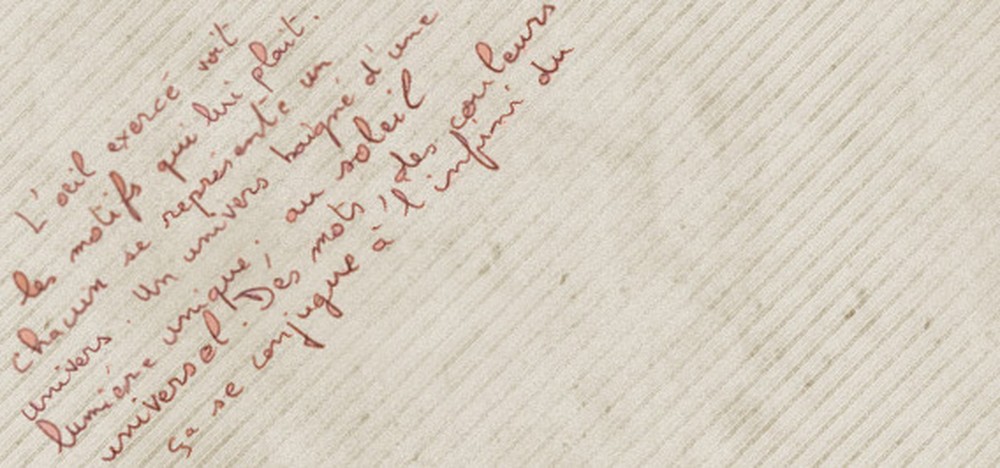 L'œil exercé voit
les motifs qui lui plait.
Chacun se représente un
univers. Un univers baigné d'une
lumière unique, au soleil
universel. Des mots, des couleurs
ça se conjugue à l'infini du